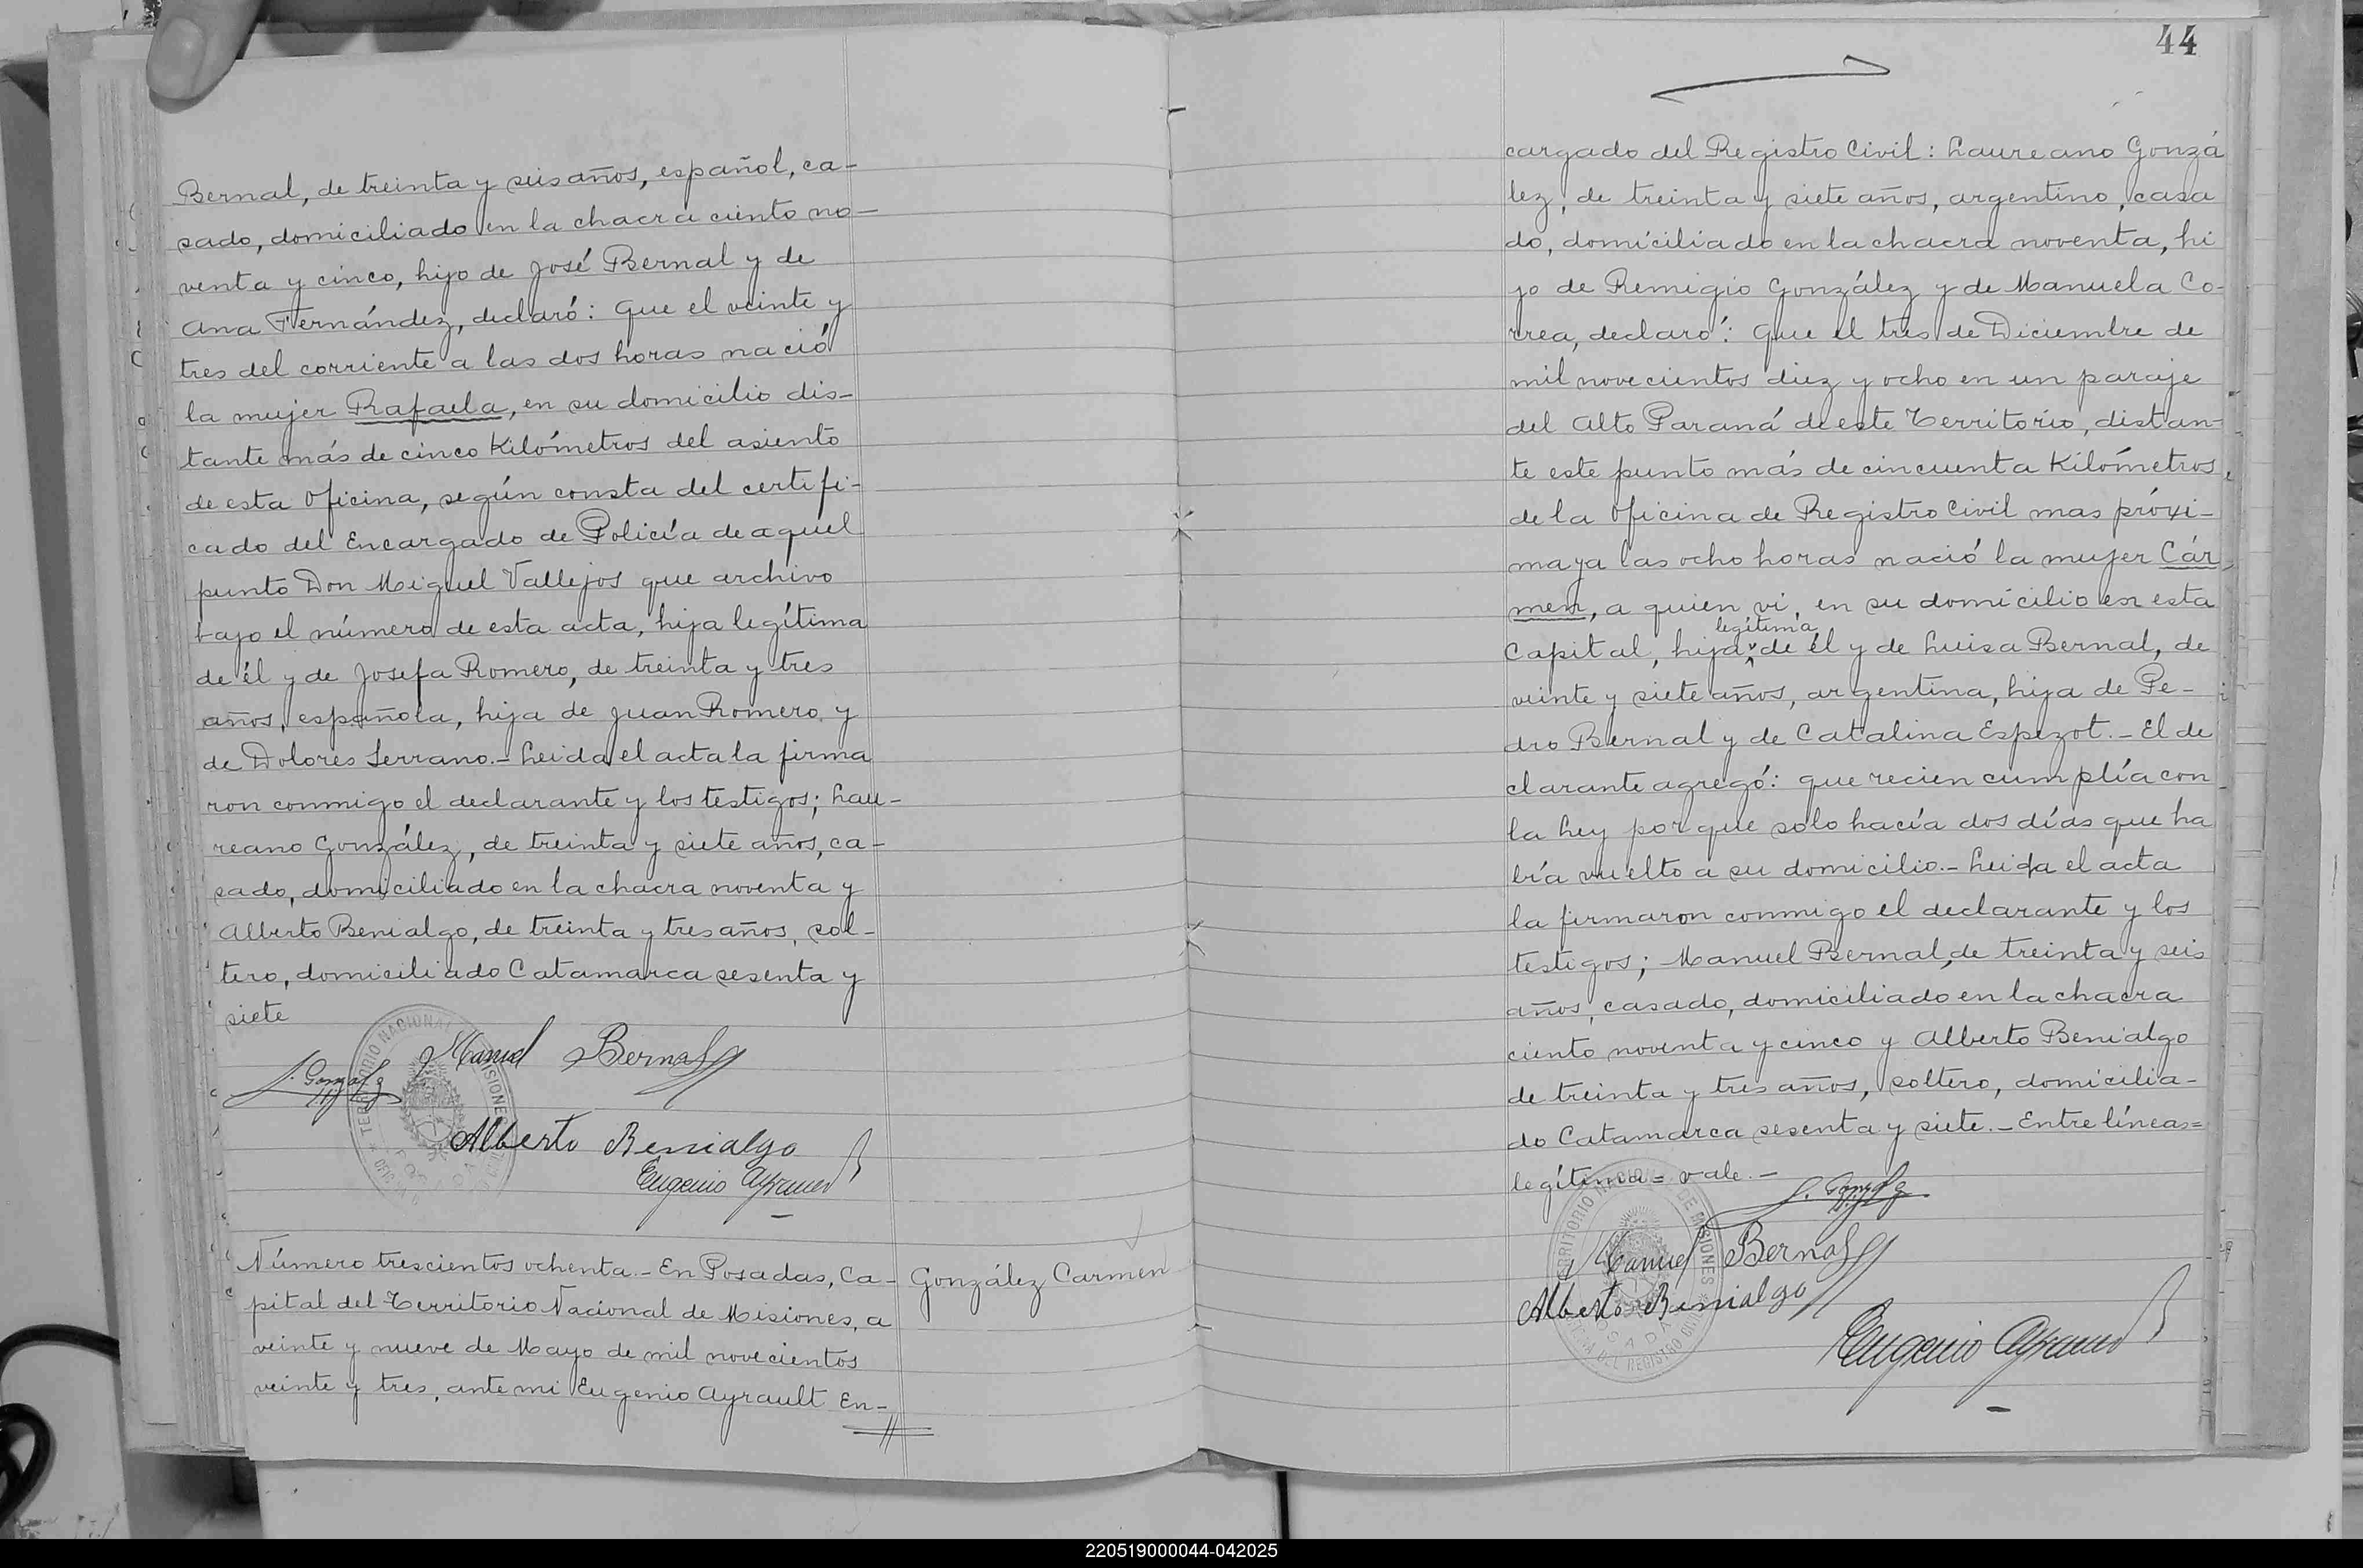 Bernal, de treinta y seis años, español, ca-
sado, domiciliado en la chacra ciento no-
venta y cinco, hijo de José Bernal y de
Ana Fernández, declaró: Que el veinte y
tres del corriente a las dos horas nació
la mujer Rafaela, en su domicilio dis-
tante más de cinco Kilómetros del asiento
de esta Oficina, según consta del certifi-
cado del Encargado de Policía de aquel
punto Don Miguel Vallejos que archivo
bajo el número de esta acta, hija legítima
de él y de Josefa Romero, de treinta y tres
años, española, hija de Juan Romero y
de Dolores Serrano.- Leida el acta la firma
ron conmigo el declarante y los testigos; Lau-
reano González, de treinta y siete años, ca-
sado, domiciliado en la chacra noventa y
Alberto Benialgo, de treinta y tres años, sol-
tero, domiciliado Catamarca sesenta y
siete
Manuel Bernal
L. Gonzalez
Alberto Benialgo
Eugenio Ayrault
TERRITORIO NACIONAL DE MISIONES
Número trescientos ochenta.- En Posadas, Ca-
pital del Territorio Nacional de Misiones, a
veinte y nueve de Mayo de mil novecientos
veinte y tres, ante mi Eugenio Ayrault En-
González Carmen
44
cargado del Registro Civil: Laureano Gonzá
lez, de treinta y siete años, argentino, casa
do, domiciliado en la chacra noventa, hi
jo de Remigio González y de Manuela Co-
rrea, declaró: Que el tres de Diciembre de
mil novecientos diez y ocho en un paraje
del Alto Paraná de este Territorio, distan-
te este punto más de cincuenta Kilómetros,
de la Oficina de Registro Civil mas próxi-
ma y a las ocho horas nació la mujer Cár
men, a quien vi, en su domicilio en esta
legítima
Capital, hija de él y de Luisa Bernal, de
veinte y siete años, argentina, hija de Pe-
dro Bernal y de Catalina Espezot.- El de
clarante agregó: que recien cumplía con
la Ley porque solo hacía dos días que ha
bía vuelto a su domicilio.- Leida el acta
la firmaron conmigo el declarante y los
testigos; Manuel Bernal, de treinta y seis
años, casado, domiciliado en la chacra
ciento noventa y cinco y Alberto Benialgo
de treinta y tres años, soltero, domicilia-
do Catamarca sesenta y siete.- Entre líneas=
legítima= vale.-
L. Gonzalez
Manuel Bernal
Alberto Benialgo
Eugenio Ayrault
TERRITORIO NACIONAL DE MISIONES
OFICINA DEL REGISTRO CIVIL
POSADAS
220519000044-042025